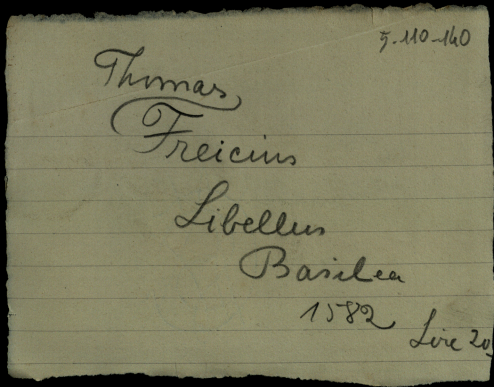 5-110-140
Thomas
Freicius
Libellus
Basilea
1582
Lire 20